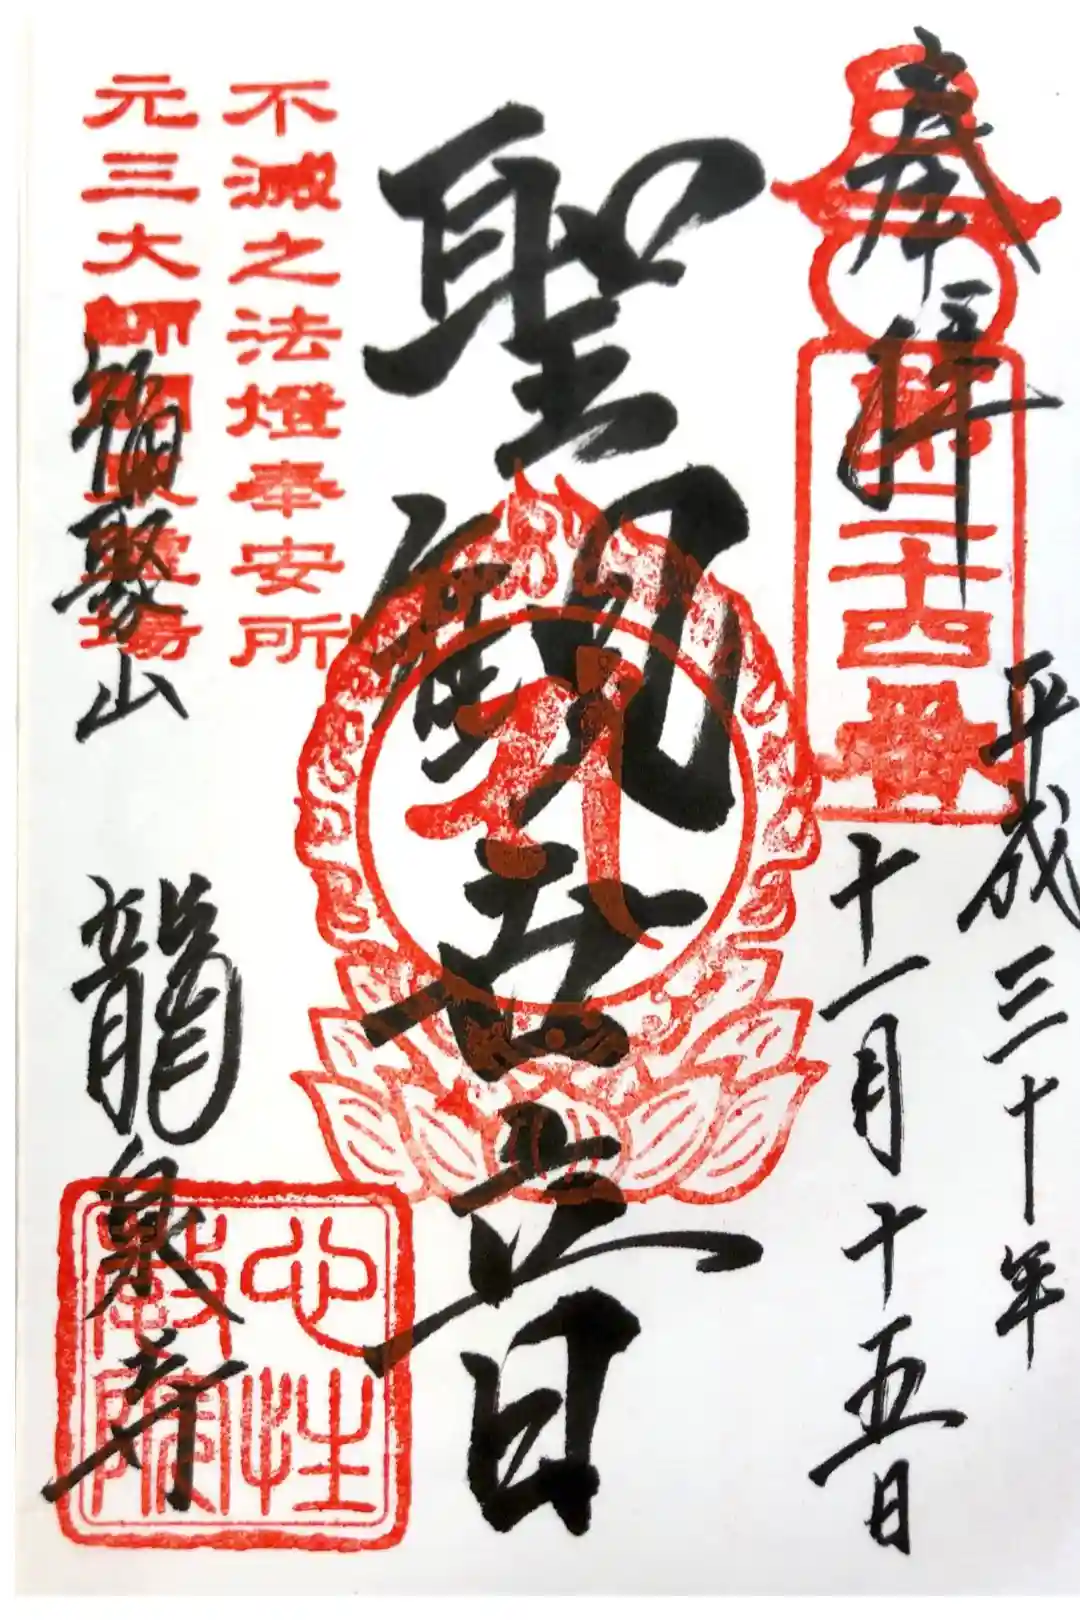 奉拝
第二十四番
平成三十年
十一月十五日
聖観世音
不滅之法燈奉安所
元三大師
山 龍泉寺
心性教院